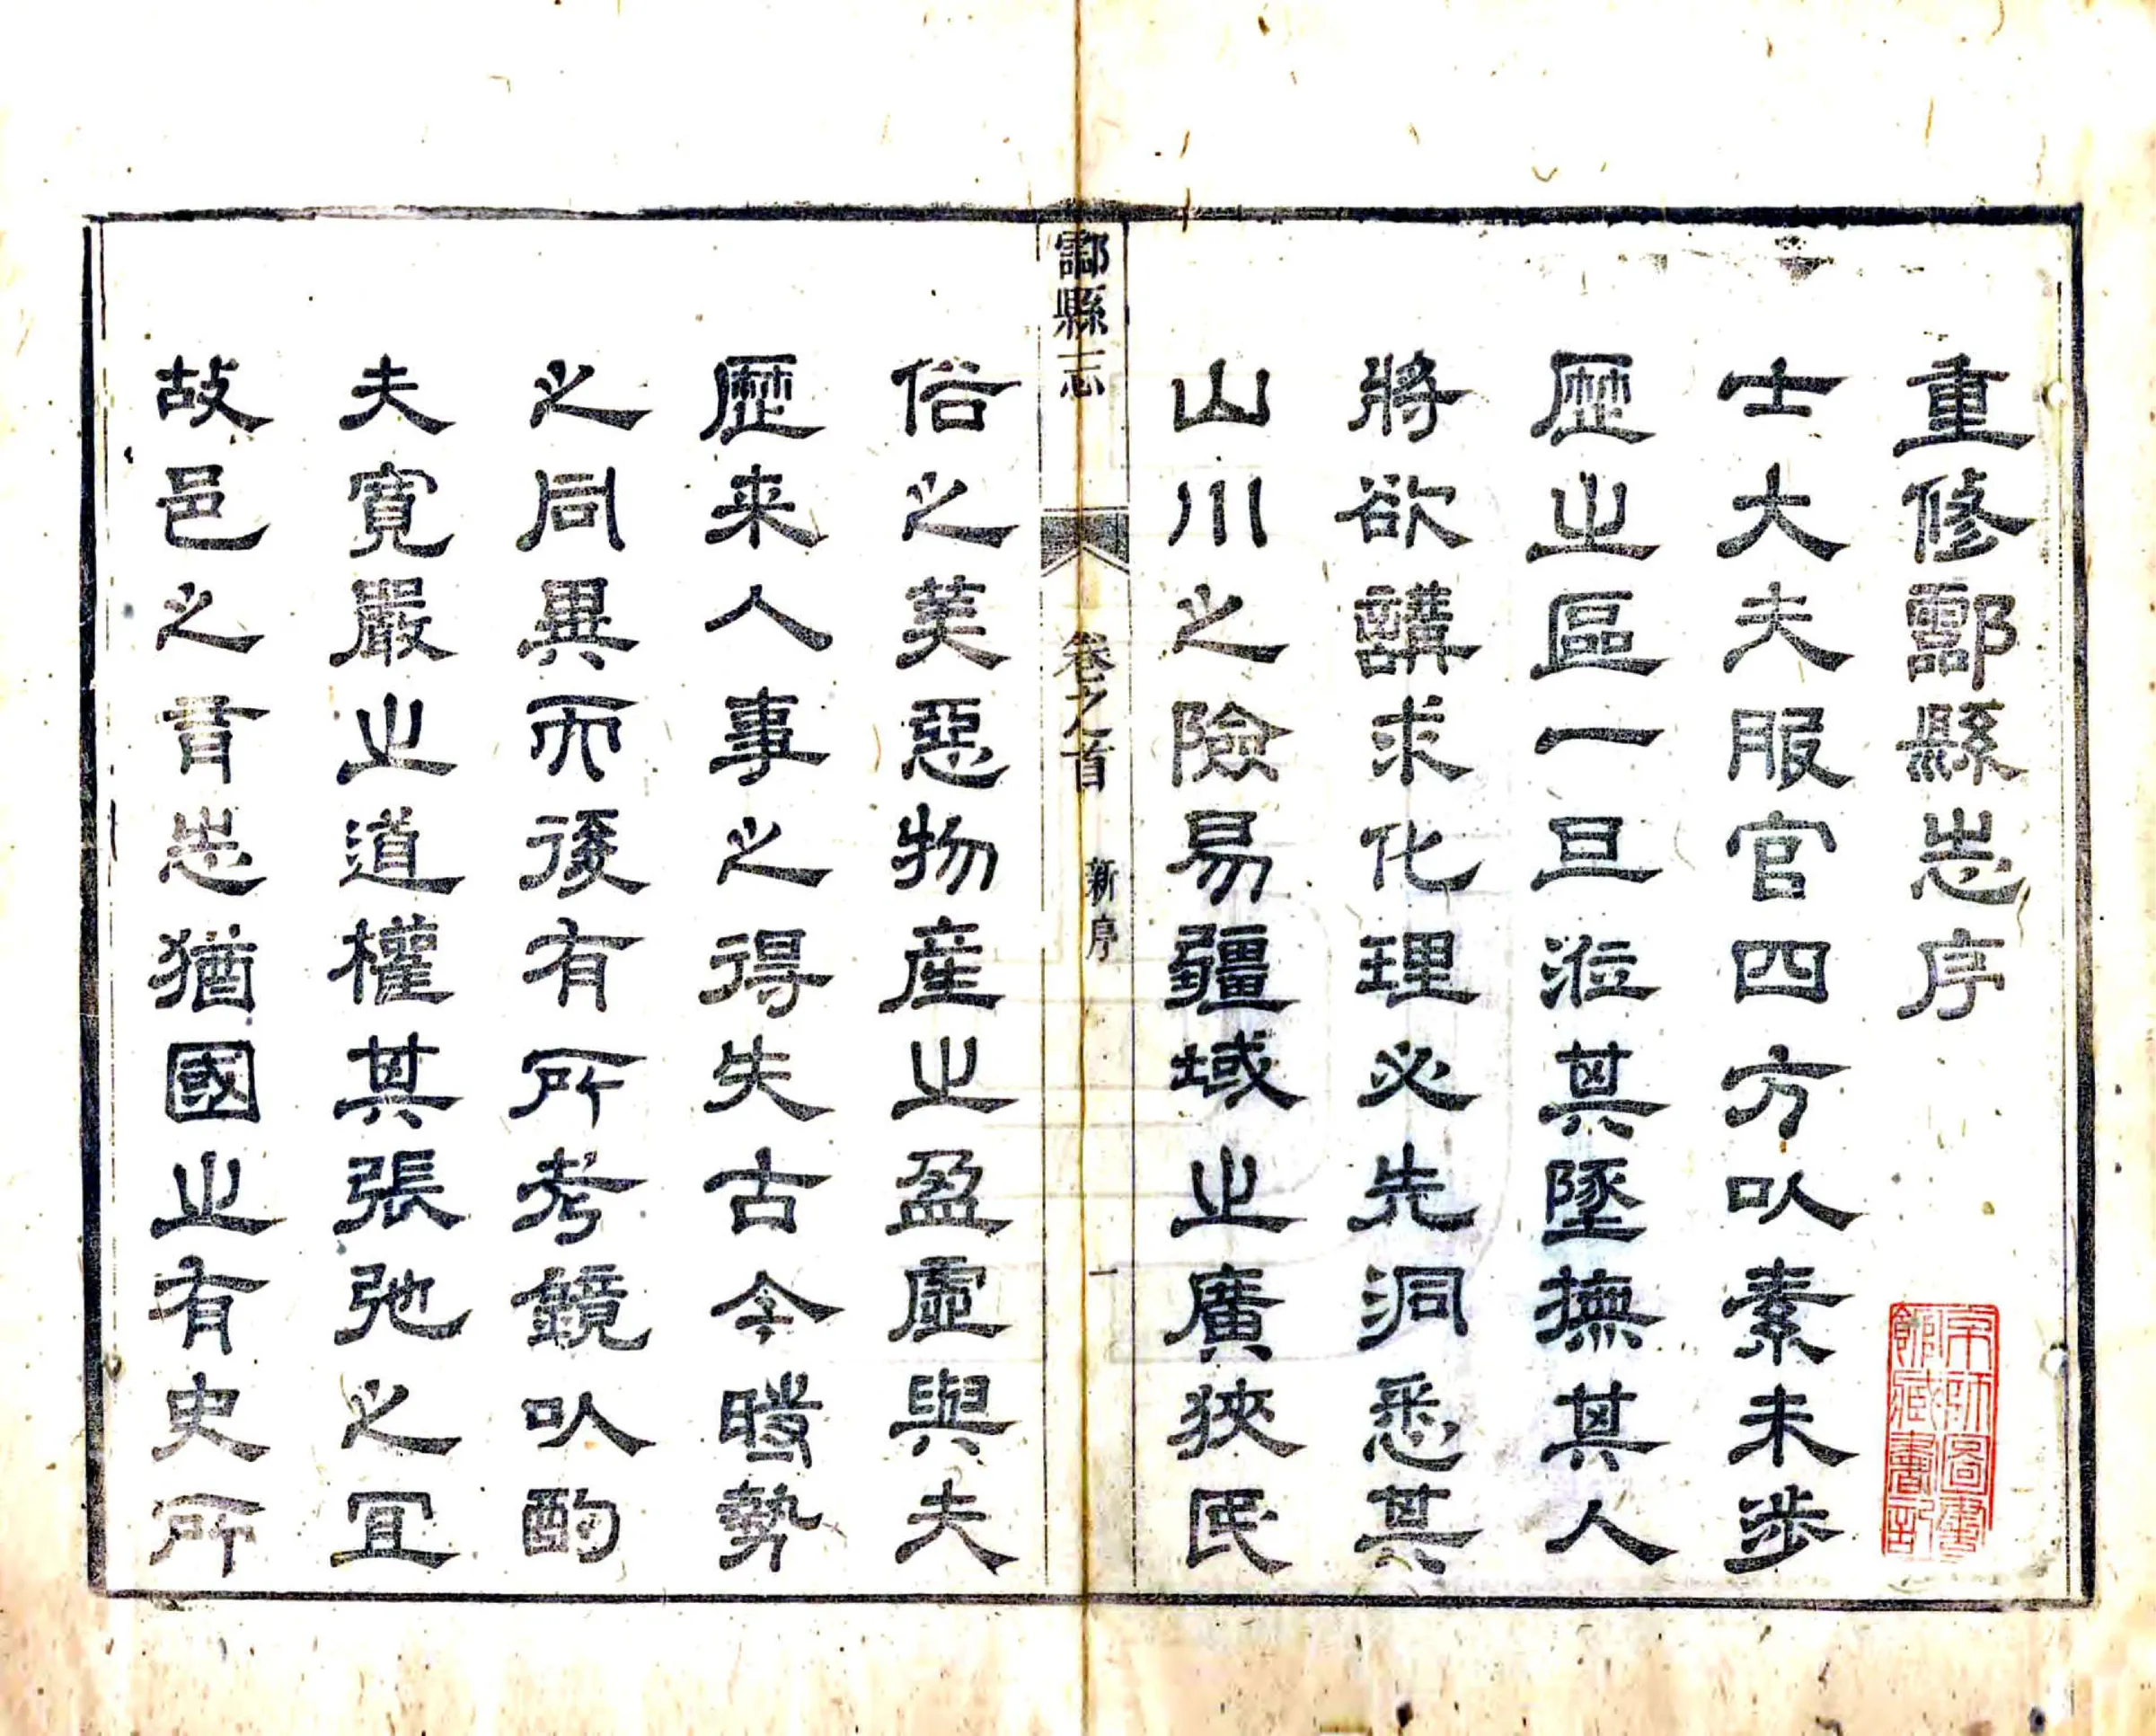 重修酃縣志序
士大夫服官四方以素未涉
歷之區一旦涖其墜撫其人
將欲講求化理必先洞悉其
山川之險易疆域之廣狹民
酃縣志
卷之首
新序
一
俗之美惡物產之盈虛與夫
歷来人事之得失古今時勢
之同異而後有所考鏡以酌
夫寬嚴之道權其張弛之宜
故邑之有志猶國之有史所